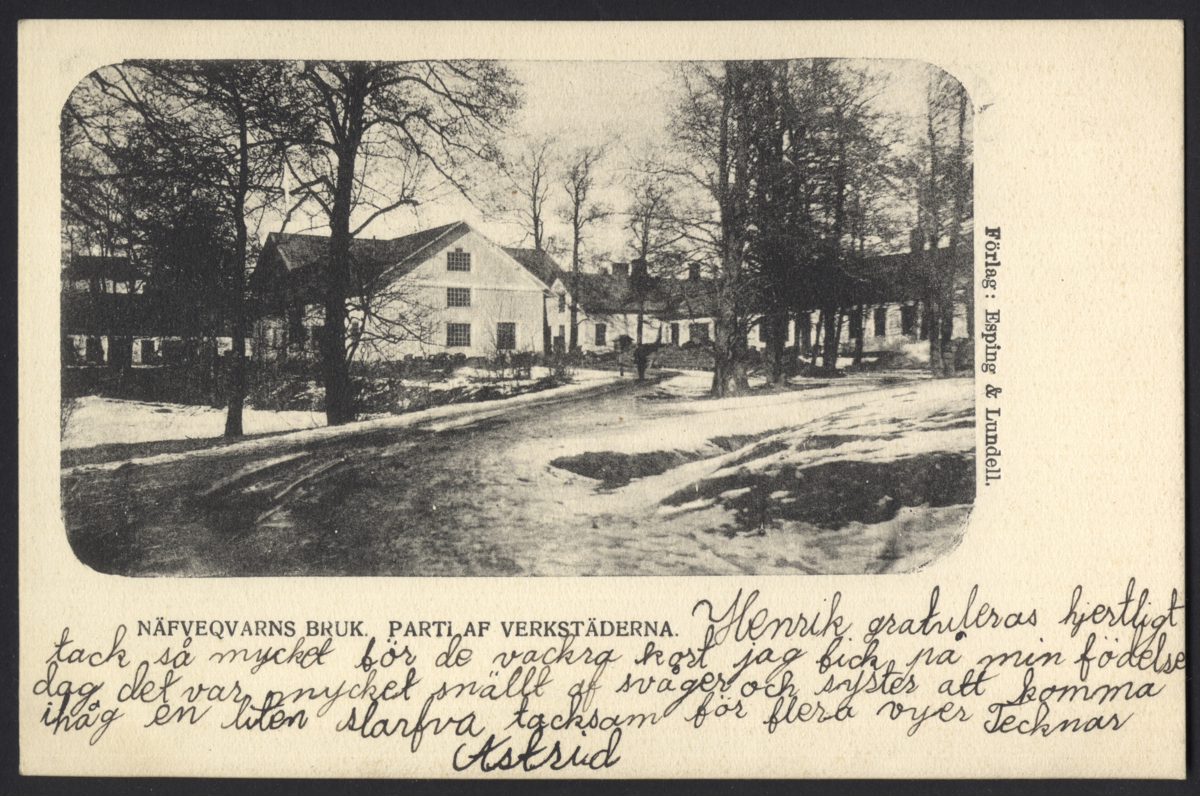 Förlag: Esping & Lundell.
NÄFVEQVARNS BRUK. PARTI AF VERKSTÄDERNA.
Henrik gratuleras hjertligt
tack så mycket för de vackra kort jag fick på min födelse
dag det var mycket snällt af svåger och syster att komma
ihåg en liten slarfva tacksam för flera vyer Tecknar
Astrid